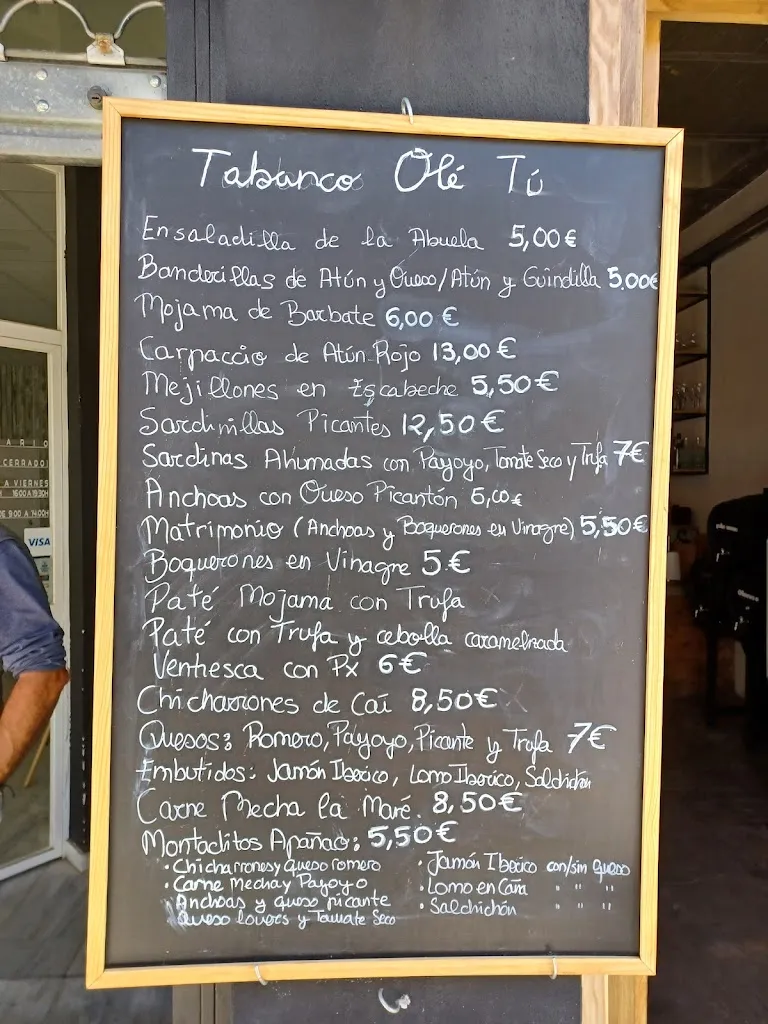 Tabanco Olé Tú
Ensaladilla de la Abuela 5,00€
Banderillas de Atún y Queso/Atún y Guindilla 5.00€
Mojama de Barbate 6,00 €
Carpaccio de Atún Rojo 13,00 €
Mejillones en Escabeche 5,50€
Sardinillas Picantes 12,50 €
Sardinas Ahumadas con Payoyo, Tomate Seco y Trufa 7€
Anchoas con Queso Picantón €
Matrimonio (Anchoas y Boquerones en Vinagre) 5,50€
Boquerones en Vinagre 5 €
Paté Mojama con Trufa
Paté con Trufa y cebolla caramelizada
Ventresca con Px 6€
Chicharrones de Caí 8,50€
Quesos: Romero, Payoyo, Picante y Trufa 7€
Embutidos: Jamón Iberico, Lomo Iberico, Salchichón
Carne Mecha la Maré. 8,50€
Montaditos Apañao: 5,50€
• Chicharrones y Queso romero
• Carne Mecha y Payoyo
Anchoas y queso picante
Queso y Tomate Seco
• Jamón Iberico con/sin queso
• Lomo en Caña " " "
• Salchichón " " "
CERRADO
A VIERNES
VISA